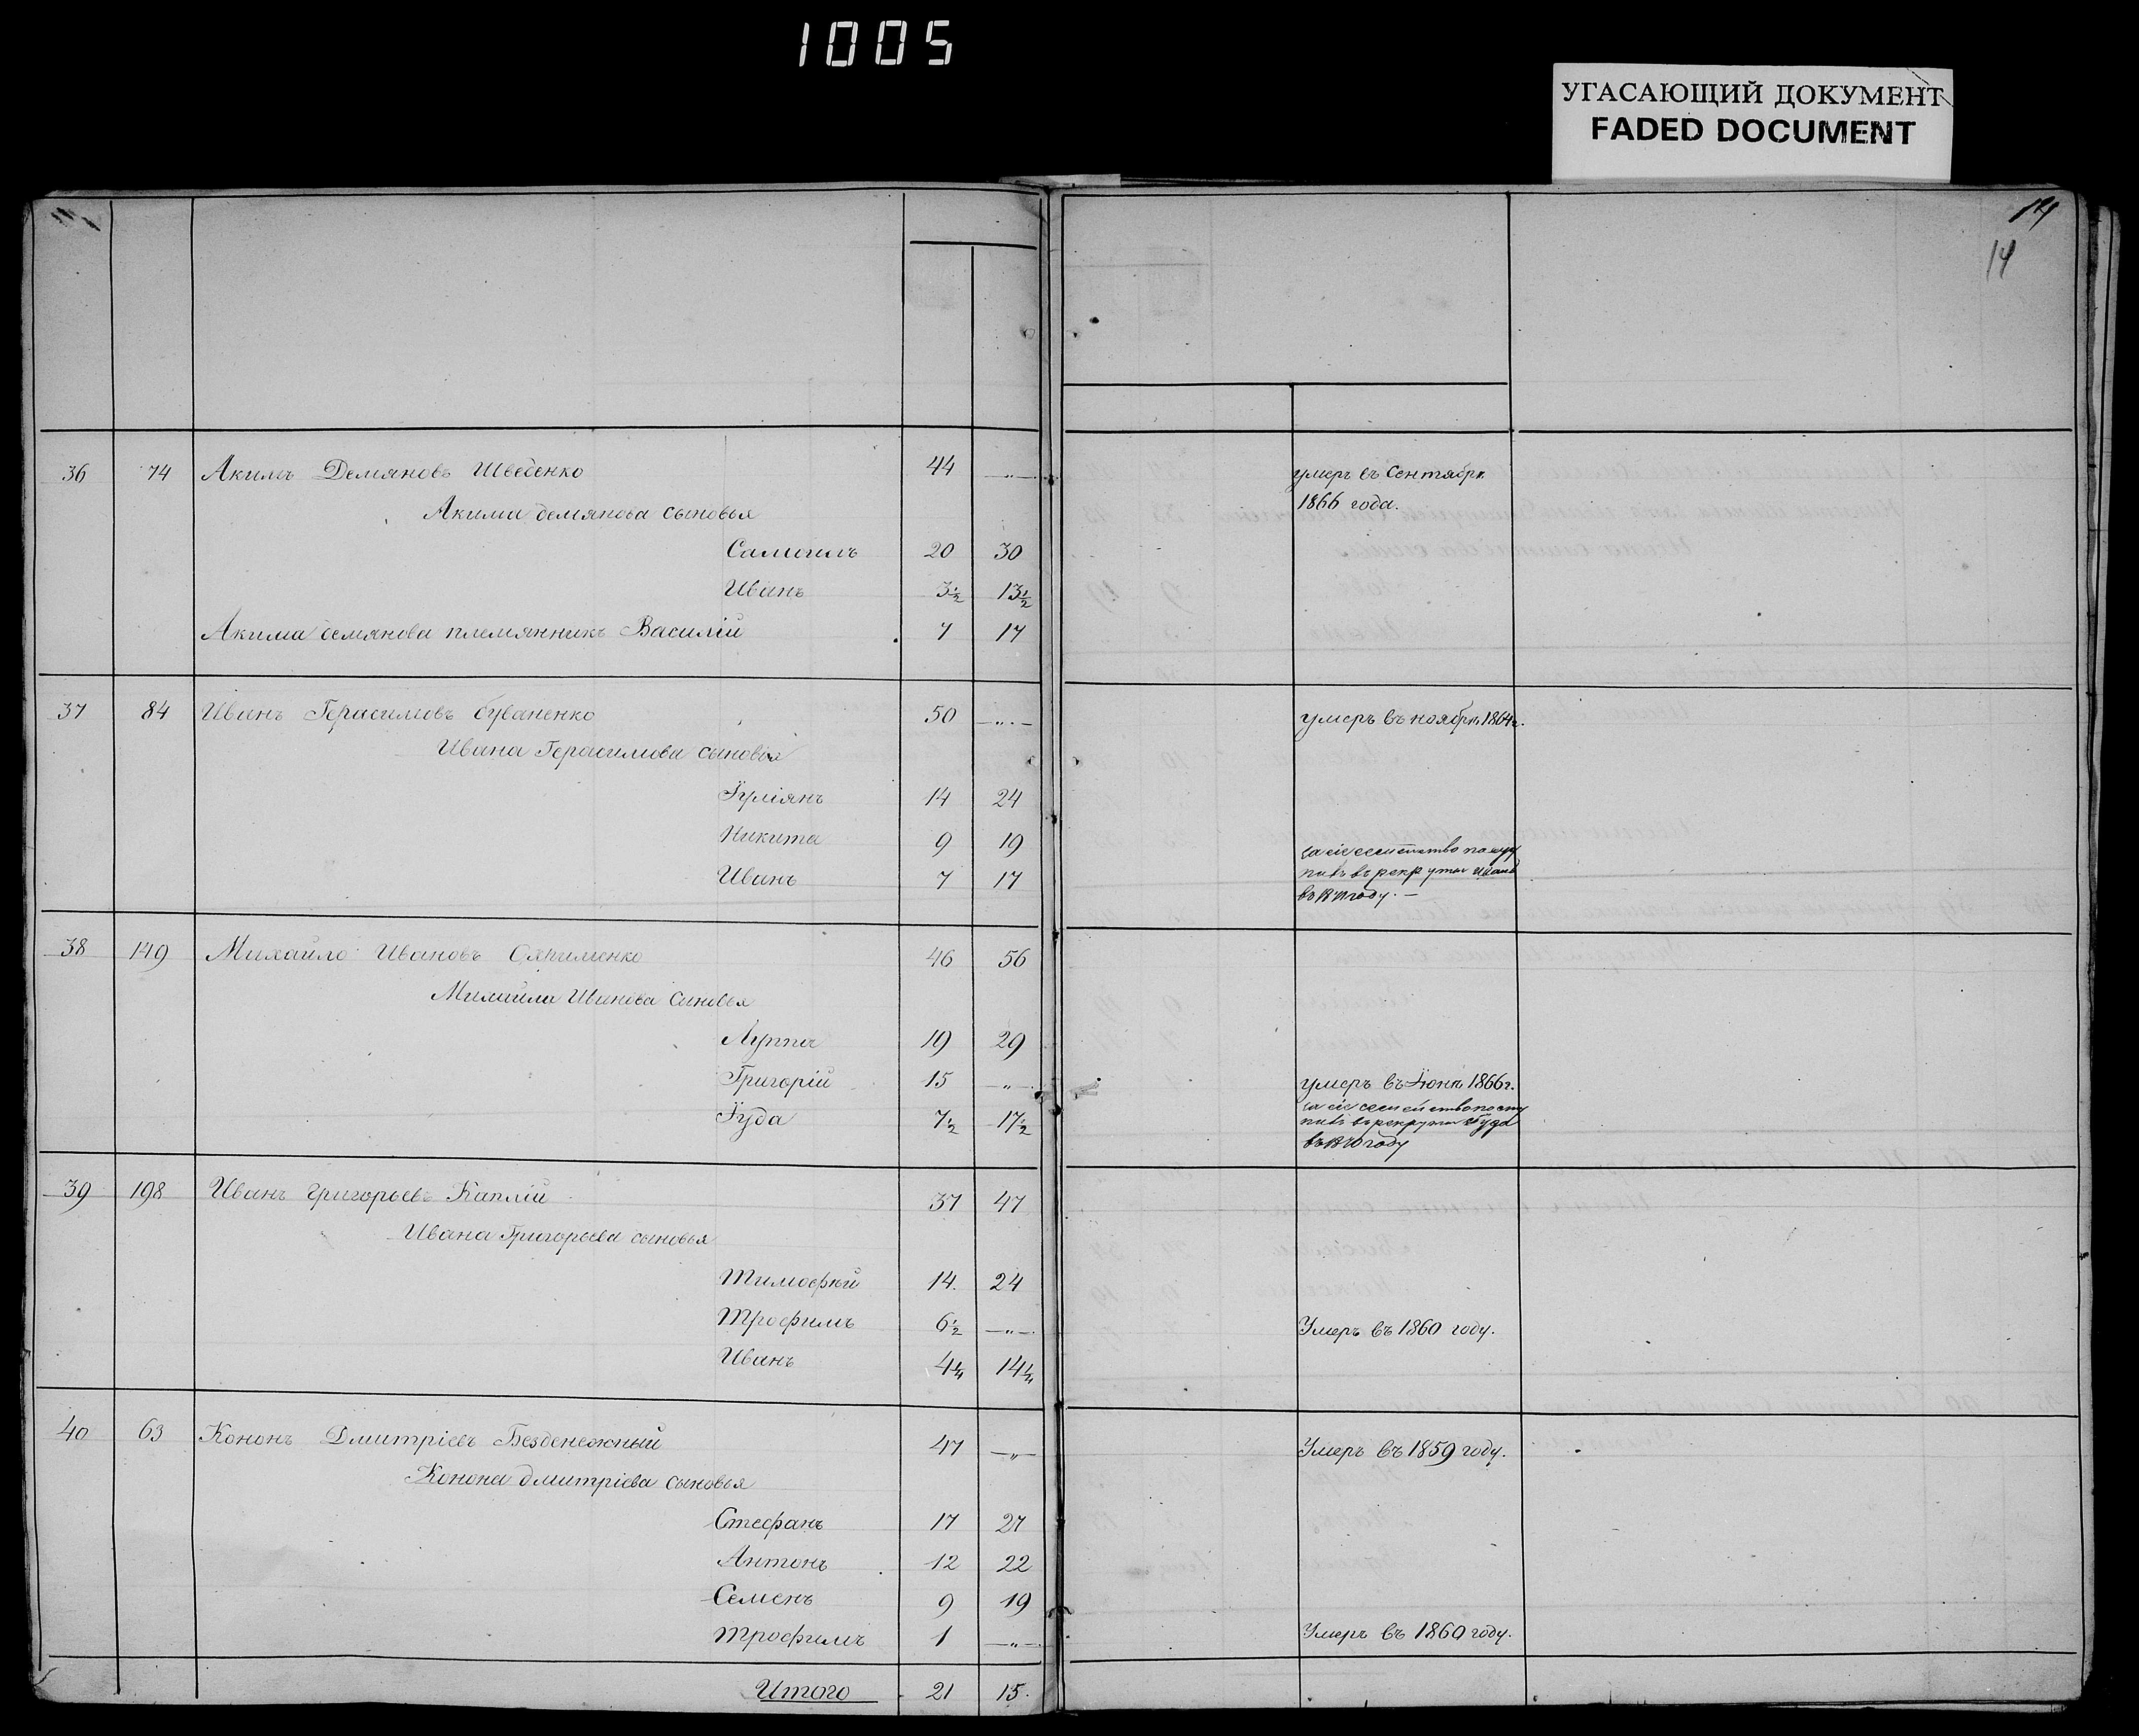 1005
УГАСАЮЩИЙ ДОКУМЕНТ
FADED DOCUMENT
14
14
36 74 Акимъ Демяновъ Шведенко 44 —„— умеръ въ Сентябрѣ
Акима демянова сыновья 1866 года.
Самуилъ 20 30
Иванъ 3½ 13½
Акима демянова племянникъ Василій 7 17
37 84 Иванъ Герасимовъ 50 —„— умеръ въ ноябрѣ 1864г.
Ивана Герасимова сыновья
Іуліянъ 14 24
Никита 9 19
за сіе семейство посту
Иванъ 7 17 пилъ въ рекруты Иванъ
въ году. —
38 149 Михайло Ивановъ 46 56
Михайла Иванова сыновья
Луппа 19 29
Григорій 15 —„— умеръ въ Іюнѣ 1866г.
за сіе семейство посту
Іуда 7½ 17½ пилъ въ рекруты Іуда
въ году
39 198 Иванъ Григорьевъ Каплій 37 47
Ивана Григорьева сыновья
Тимофѣй 14. 24
Трофимъ 6½ —„— Умеръ въ 1860 году.
Иванъ 4¼ 14¼
40 63 Кононъ Дмитріевъ Безденежный 47 —„— Умеръ въ 1859 году.
Конона дмитріева сыновья
Стефанъ 17 27
Антонъ 12 22
Семенъ 9 19
Трофимъ 1 —„— Умеръ въ 1860 году.
Итого 21 15.